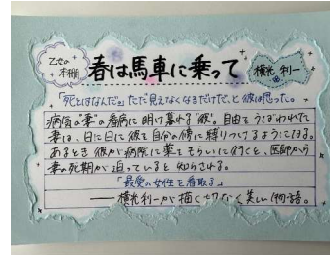 乙女の
本棚
春は馬車に乗って
横光利一
「死とはなんだ。ただ見えなくなるだけだ。」と彼は思った。
病気の妻の看病に明け暮れる彼。自由をうばわれた
妻は、日に日に彼を自分の傍に縛りつけるようになる。
あるとき彼が病院に薬をもらいに行くと、医師から
妻の死期が迫っていると知らされる。
「最愛の女性を看取る」
――横光利一が描く切なく美しい物語。